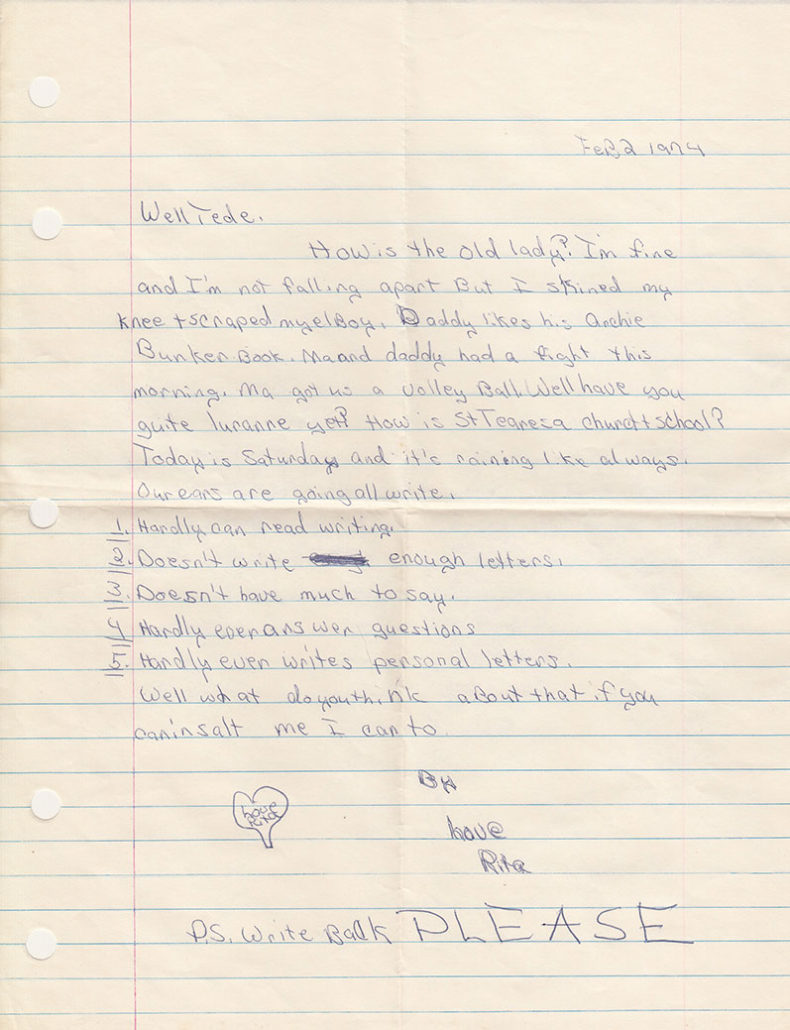 Feb 2 1974
Well Tede.
How is the old lady? I'm fine
and I'm not falling apart But I skined my
knee + scraped my elBoy. Daddy likes his Archie
Bunker Book. Ma and daddy had a fight this
morning. Ma got us a volley Ball. Well have you
guite luranne yet? How is St Tearesa church + school?
Today is Saturday and it's raining like always.
Our ears are going all write.
1. Hardly can read writing.
2. Doesn't write enough letters.
3. Doesn't have much to say.
4 Hardly ever answer questions
5. Hardly ever writes personal letters.
Well what do you think aBout that if you
can insalt me I can to.
By
Love
Rita
Love
Rita
P.S. Write Back PLEASE